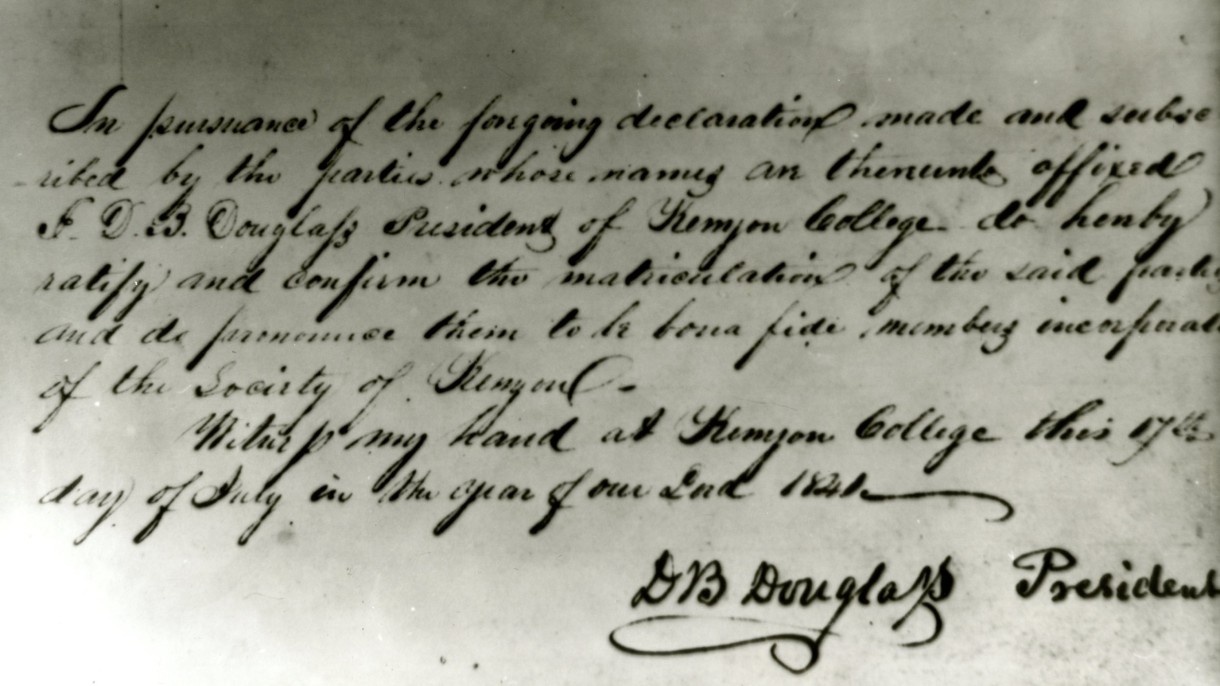 In pursuance of the forgoing declaration made and subsc
ribed by the parties whose names are thereunto affixed
I. D. B. Douglaſs President of Kenyon College do hereby
ratify and confirm the matriculation of the said party
and do pronounce them to be bona fide members incorporat
of the Society of Kenyon. -
Witneſs my hand at Kenyon College this 17th
day of July in the year of our Lord 1841.
D B Douglaſs President